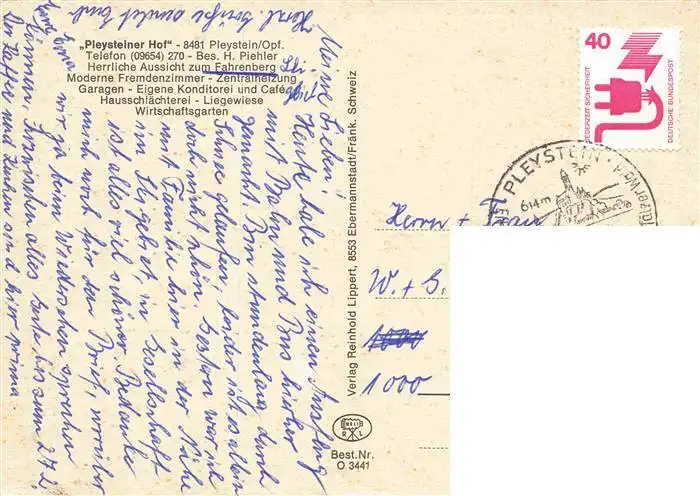 „Pleysteiner Hof" - 8481 Pleystein/Opf.
Telefon (09654) 270 - Bes. H. Piehler
Herrliche Aussicht zum Fahrenberg
Moderne Fremdenzimmer - Zentralheizung
Garagen - Eigene Konditorei und Café
Hausschlächterei - Liegewiese
Wirtschaftsgarten
Meine Lieben!
Heute habe ich einen Ausflug
mit Bahn und Bus hierher
gemacht. Bin stundenlang durch
Schnee gelaufen, leider ist es allein
doch nicht schön. Gestern war ich
mit Familie hier in der Nähe
in, in Gesellschaft
ist alles viel schöner. Bedanke
mich noch für den Brief, worüber
wir ja beim Wiedersehen sprechen
können. Inzwischen alles Gute bis zum 27.2.
Der Kaffee und Kuchen sind hier prima
Herzl. Grüße sendet Euch
Verlag Reinhold Lippert, 8553 Ebermannstadt/Fränk. Schweiz
40
JEDERZEIT SICHERHEIT
DEUTSCHE BUNDESPOST
PLEYSTEIN
614 m
Herrn + Frau
W. + G.
1000
1000
R L
Best.Nr.
O 3441